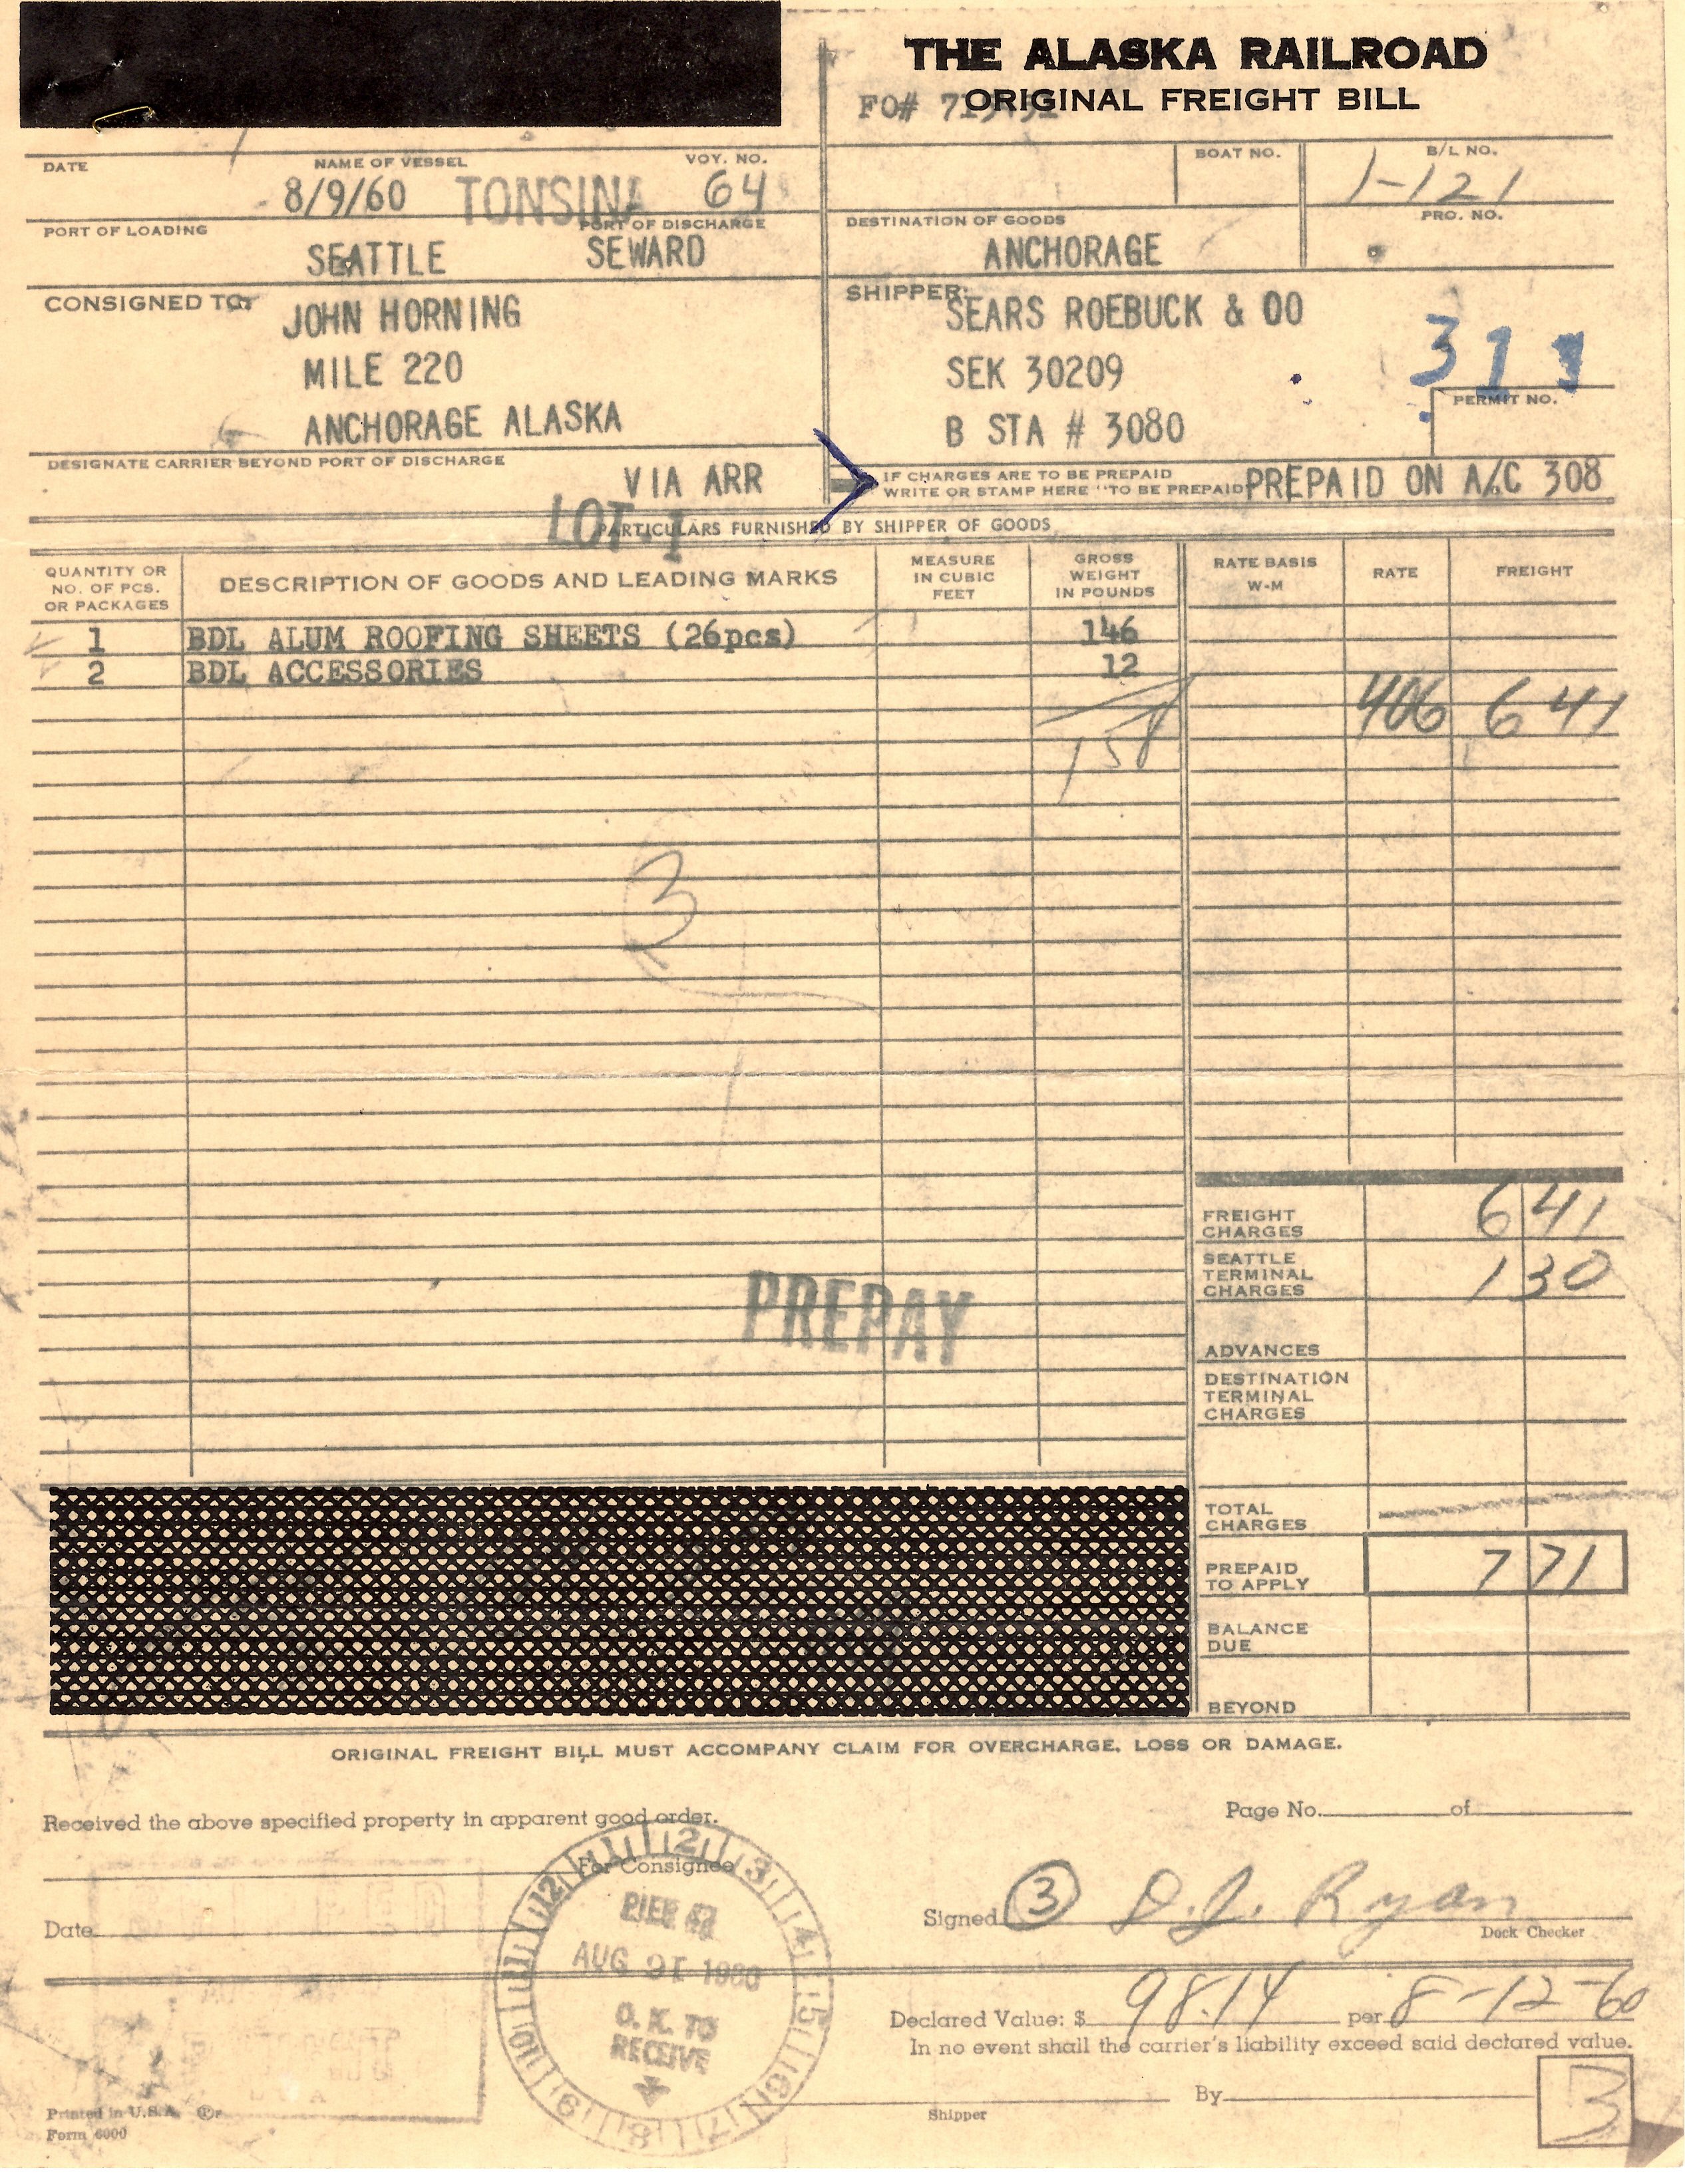 THE ALASKA RAILROAD
ORIGINAL FREIGHT BILL
FO#
DATE
NAME OF VESSEL
VOY. NO.
BOAT NO.
B/L NO.
8/9/60 TONSINA 64
1-121
PORT OF LOADING
PORT OF DISCHARGE
DESTINATION OF GOODS
PRO. NO.
SEATTLE SEWARD
ANCHORAGE
CONSIGNED TO:
JOHN HORNING
MILE 220
ANCHORAGE ALASKA
SHIPPER:
SEARS ROEBUCK & OO
SEK 30209
B STA # 3080
311
PERMIT NO.
DESIGNATE CARRIER BEYOND PORT OF DISCHARGE
VIA ARR
IF CHARGES ARE TO BE PREPAID
WRITE OR STAMP HERE "TO BE PREPAID
PREPAID ON A/C 308
LOT 1
PARTICULARS FURNISHED BY SHIPPER OF GOODS
QUANTITY OR
NO. OF PCS.
OR PACKAGES
DESCRIPTION OF GOODS AND LEADING MARKS
MEASURE
IN CUBIC
FEET
GROSS
WEIGHT
IN POUNDS
RATE BASIS
W-M
RATE
FREIGHT
1 BDL ALUM ROOFING SHEETS (26pcs) 146
2 BDL ACCESSORIES 12
406 6 41
158
3
FREIGHT
CHARGES
6 41
SEATTLE
TERMINAL
CHARGES
1 30
PREPAY
ADVANCES
DESTINATION
TERMINAL
CHARGES
TOTAL
CHARGES
PREPAID
TO APPLY
7 71
BALANCE
DUE
BEYOND
ORIGINAL FREIGHT BILL MUST ACCOMPANY CLAIM FOR OVERCHARGE, LOSS OR DAMAGE.
Received the above specified property in apparent good order.
Page No. of
For Consignee
12 1 2 3 4 5 6 7 8 9 10 11
PIER
AUG 9 1960
O. K. TO
RECEIVE
Date
Signed 3 D.J. Ryan
Dock Checker
Declared Value: $ 98.14 per 8-12-60
In no event shall the carrier's liability exceed said declared value.
By
Shipper
3
Printed in U.S.A.
Form 6000